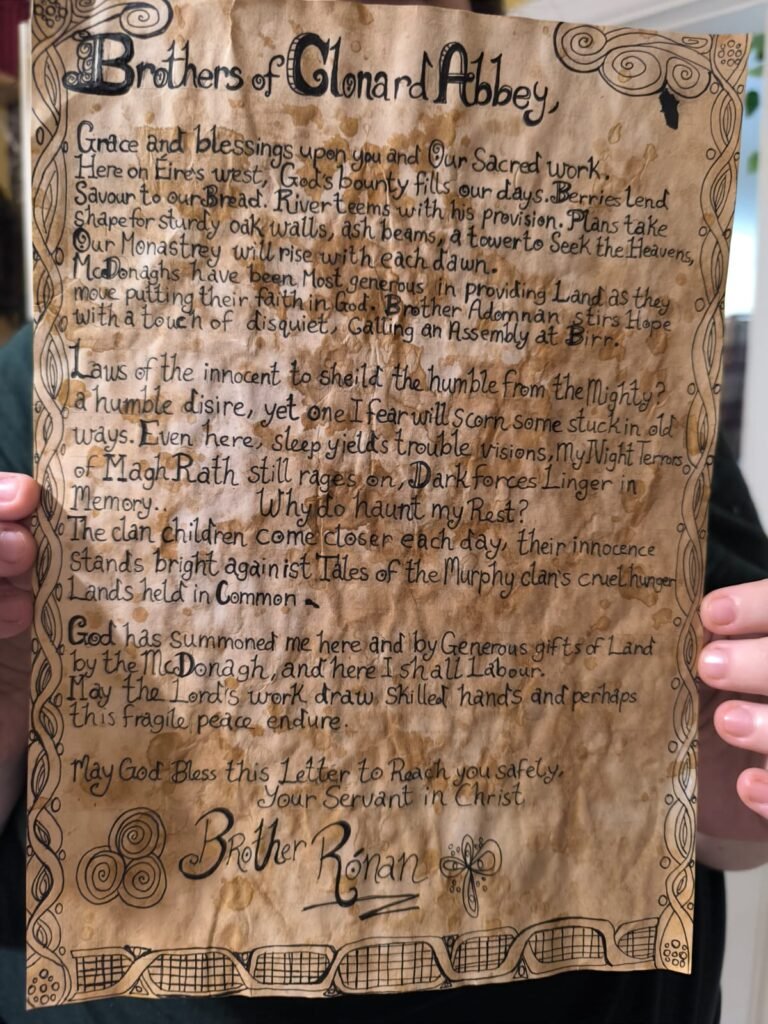 Brothers of Clonard Abbey,
Grace and blessings upon you and Our Sacred work.
Here on Éire's west, God's bounty fills our days. Berries lend
Savour to our Bread. River teems with his provision. Plans take
shape for sturdy oak walls, ash beams, a tower to Seek the Heavens,
Our Monastrey will rise with each dawn.
McDonaghs have been Most generous in providing Land as they
move putting their faith in God. Brother Adomnan stirs Hope
with a touch of disquiet, Calling an Assembly at Birr.
Laws of the innocent to sheild the humble from the Mighty?
a humble disire, yet one I fear will scorn some stuck in old
ways. Even here, sleep yields trouble visions, my Night Terrors,
of Magh Rath still rages on, Dark forces Linger in
Memory.. Why do haunt my Rest?
The clan children come closer each day, their innocence
stands bright againist Tales of the Murphy clan's cruel hunger
Lands held in Common
God has summoned me here and by Generous gifts of Land
by the McDonagh, and here I shall Labour.
May the Lord's work draw skilled hands and perhaps
this fragile peace endure.
May God Bless this Letter to Reach you safely,
Your Servant in Christ
Brother Rónan